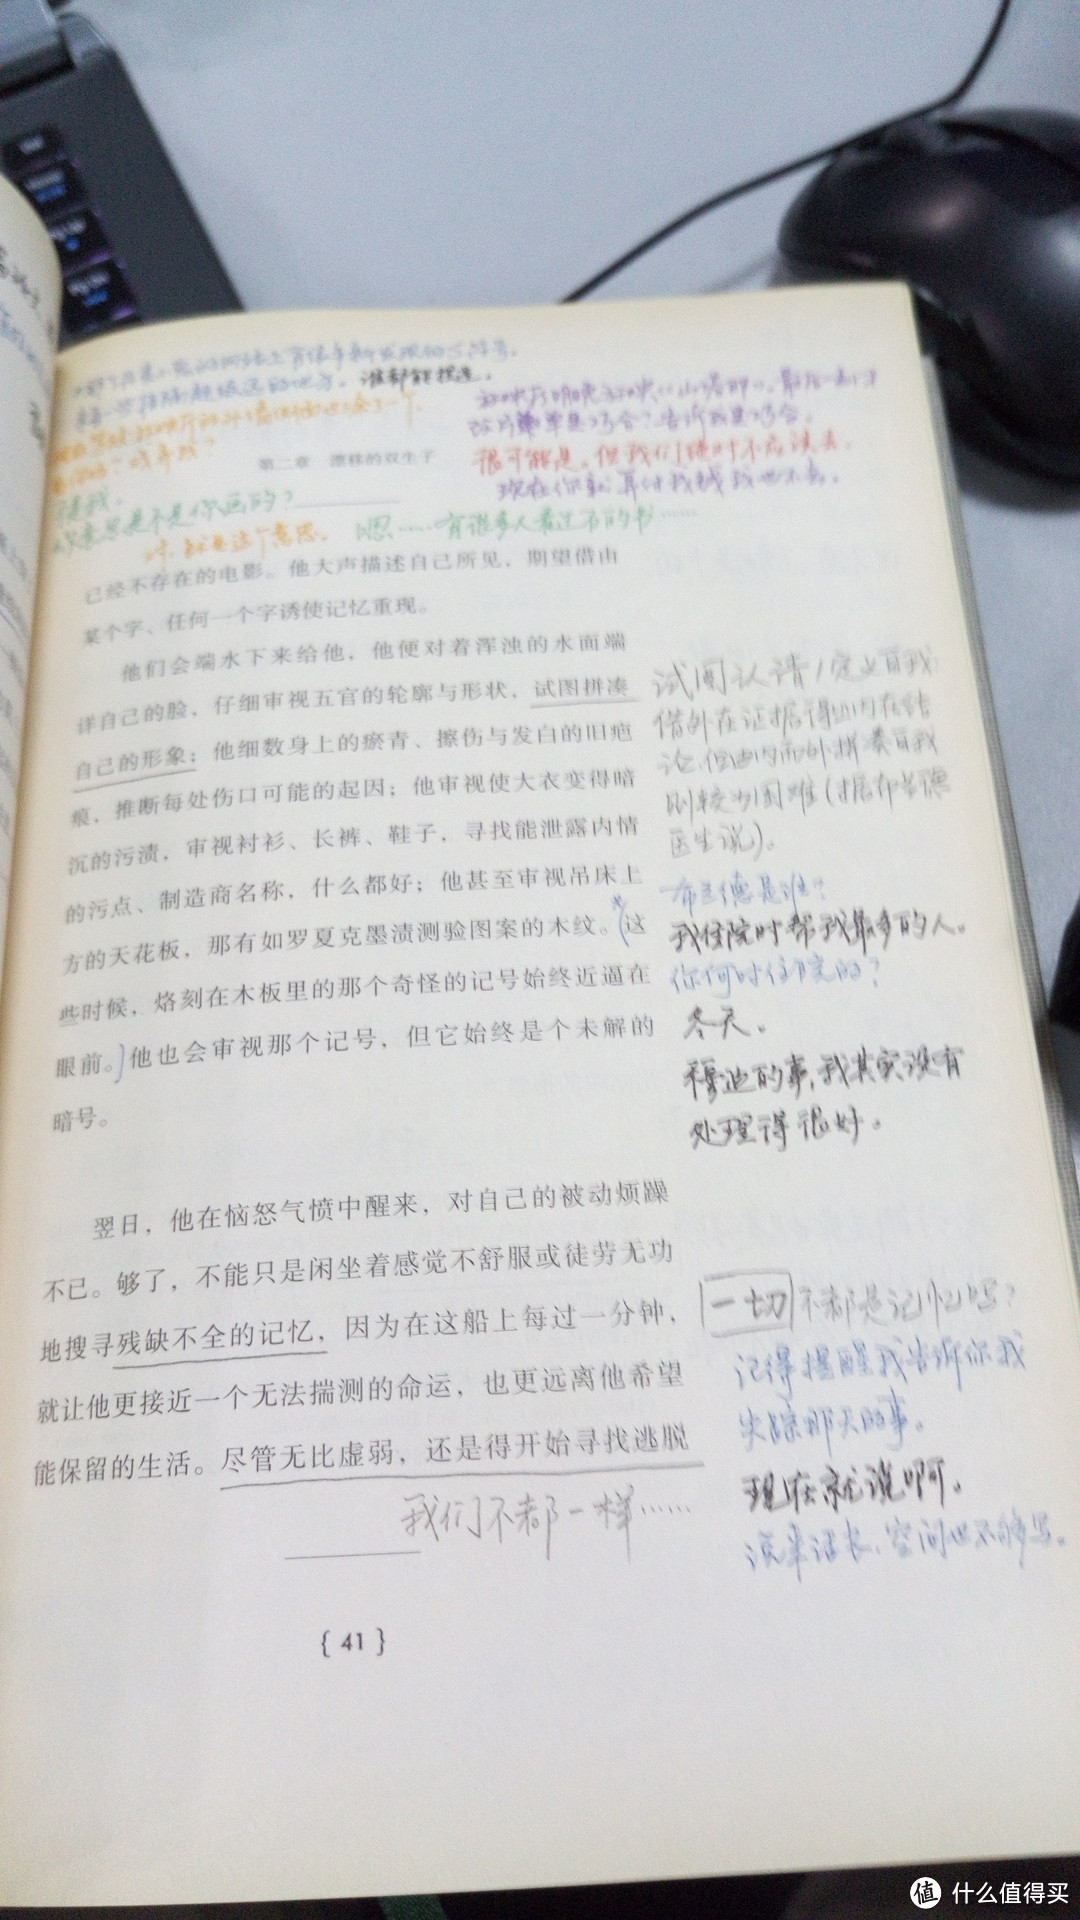 谁都能报送。
很可能是。但我们随时不应该去。
现在你就算付我钱我也不去。
第二章 漂移的双生子
你意思是不是你画的？
对，就是这个意思。
嗯……有很多人看过不的书……
已经不存在的电影。他大声描述自己所见，期望借由
某个字、任何一个字诱使记忆重现。
他们会端水下来给他，他便对着浑浊的水面端
详自己的脸，仔细审视五官的轮廓与形状，试图拼凑
自己的形象；他细数身上的瘀青、擦伤与发白的旧疤
痕，推断每处伤口可能的起因；他审视使大衣变得暗
沉的污渍，审视衬衫、长裤、鞋子，寻找能泄露内情
的污点、制造商名称，什么都好；他甚至审视吊床上
方的天花板，那有如罗夏克墨渍测验图案的木纹。（这
些时候，烙刻在木板里的那个奇怪的记号始终近逼在
眼前。）他也会审视那个记号，但它始终是个未解的
暗号。
试图认清/定义自我
借外在证据得出内在结
论，但由内而外拼凑自我
则较为困难（据布兰德
医生说）。
布兰德是谁？
我住院时帮我最多的人。
你何时住院的？
冬天。
的事，我其实没有
处理得很好。
翌日，他在恼怒气愤中醒来，对自己的被动烦躁
不已。够了，不能只是闲坐着感觉不舒服或徒劳无功
地搜寻残缺不全的记忆，因为在这船上每过一分钟，
就让他更接近一个无法揣测的命运，也更远离他希望
能保留的生活。尽管无比虚弱，还是得开始寻找逃脱
一切不都是记忆吗？
记得提醒我告诉你我
失踪那天的事。
现在就说啊。
说来话长，空间也不够写。
我们不都一样……
{ 41 }
值 什么值得买